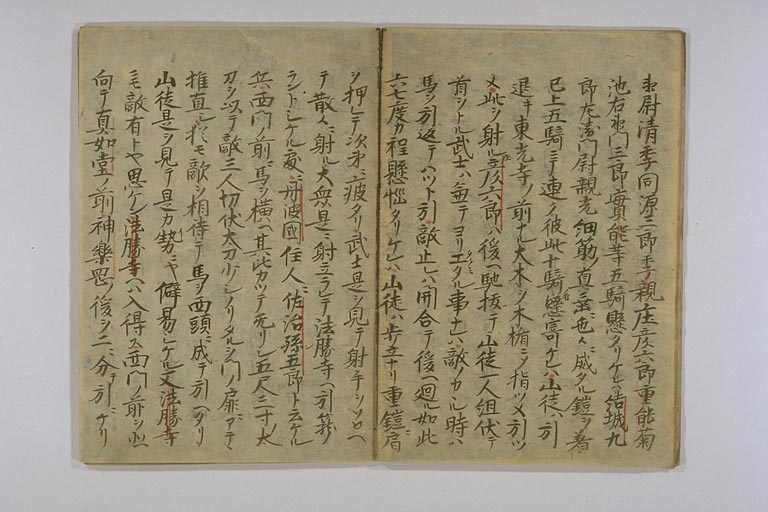 尉清季同源三郎季親庄彦六郎重能菊
池右衛門三郎實能等五騎懸タリケレハ結城九
郎左衛門尉親光細筋ノ直垂ニ色々威タル鎧ヲ着
已上五騎ニテ連ク彼此十騎懸寄ケレハ山徒ハ引
退キ東光寺ノ前ナル大木ヲ木楯ニ指ツメ引ツ
メ此ヲ射ル彦六郎ハ後ヘ馳抜テ山徒一人組伏テ
首ヲトル武士ハ無テヨリエタル事ナレハ敵カヽル時ハ
馬ヲ引返テハツト引敵止レハ開合テ後ヘ廻ル如此
六七度カ程懸悩タリケレハ山徒ハ歩立ナリ重鎧ニ肩
ヲ押レテ次第ニ疲タリ武士是ヲ見テ射手ヲソロヘ
テ散々ニ射ル大衆是ニ射立ラレテ法勝寺ヘ引籠
ラントシケル處ニ丹波國住人佐治孫五郎ト云ケル
兵西門ノ前ニ馬ヲ横ヘ其比カツテ无リシ五尺三寸ノ太
刀ヲ以テ敵三人切伏太刀ノ少シノリタルヲ門ノ扉ニアテヽ
推直シ猶モ敵ヲ相待テ馬ヲ西頭ニ成テ引ヘタリ
山徒是ヲ見テ是カ勢ニヤ僻易シケル又法勝寺ニ
毛敵有トヤ思ケン法勝寺ヘハ入得ス西門ノ前ヲ北ヘ
向テ真如堂ノ前神樂岡ノ後ヲ二ニ分テ引ケリ